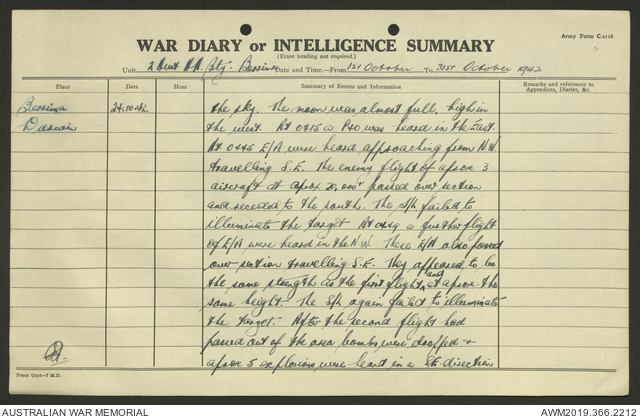 Army Form C.2118
WAR DIARY or INTELLIGENCE SUMMARY
(Erase heading not required).
Unit 2 Heavy A.A. Bty. Berrima Date and Time.—From 1st October To 31st October 1942
Place Date Hour Summary of Events and Information Remarks and references to Appendices, Diaries, &c.
Berrima 24.10.42. the sky. The moon was almost full, high in
Darwin the west. At 0415 a P40 was heard in the East.
At 0445 E/A were heard approaching from N.W
travelling S.E. The enemy flight of aprox 3
aircraft at aprox 20,000' passed over section
and receded to the south. The S/L failed to
illuminate the target. At 0459 a further flight
of E/A were heard in the N.W. These E/A also passed
over section travelling S.E. They appeared to be
the same strength as the first flight and at aprox. the
same height. The S/L again failed to illuminate
the target. After the second flight had
passed out of the area bombs were dropped &
aprox 5 explosions were heard in a S.E. direction
Press Unit—7 M.D.
AUSTRALIAN WAR MEMORIAL
AWM2019.366.2212